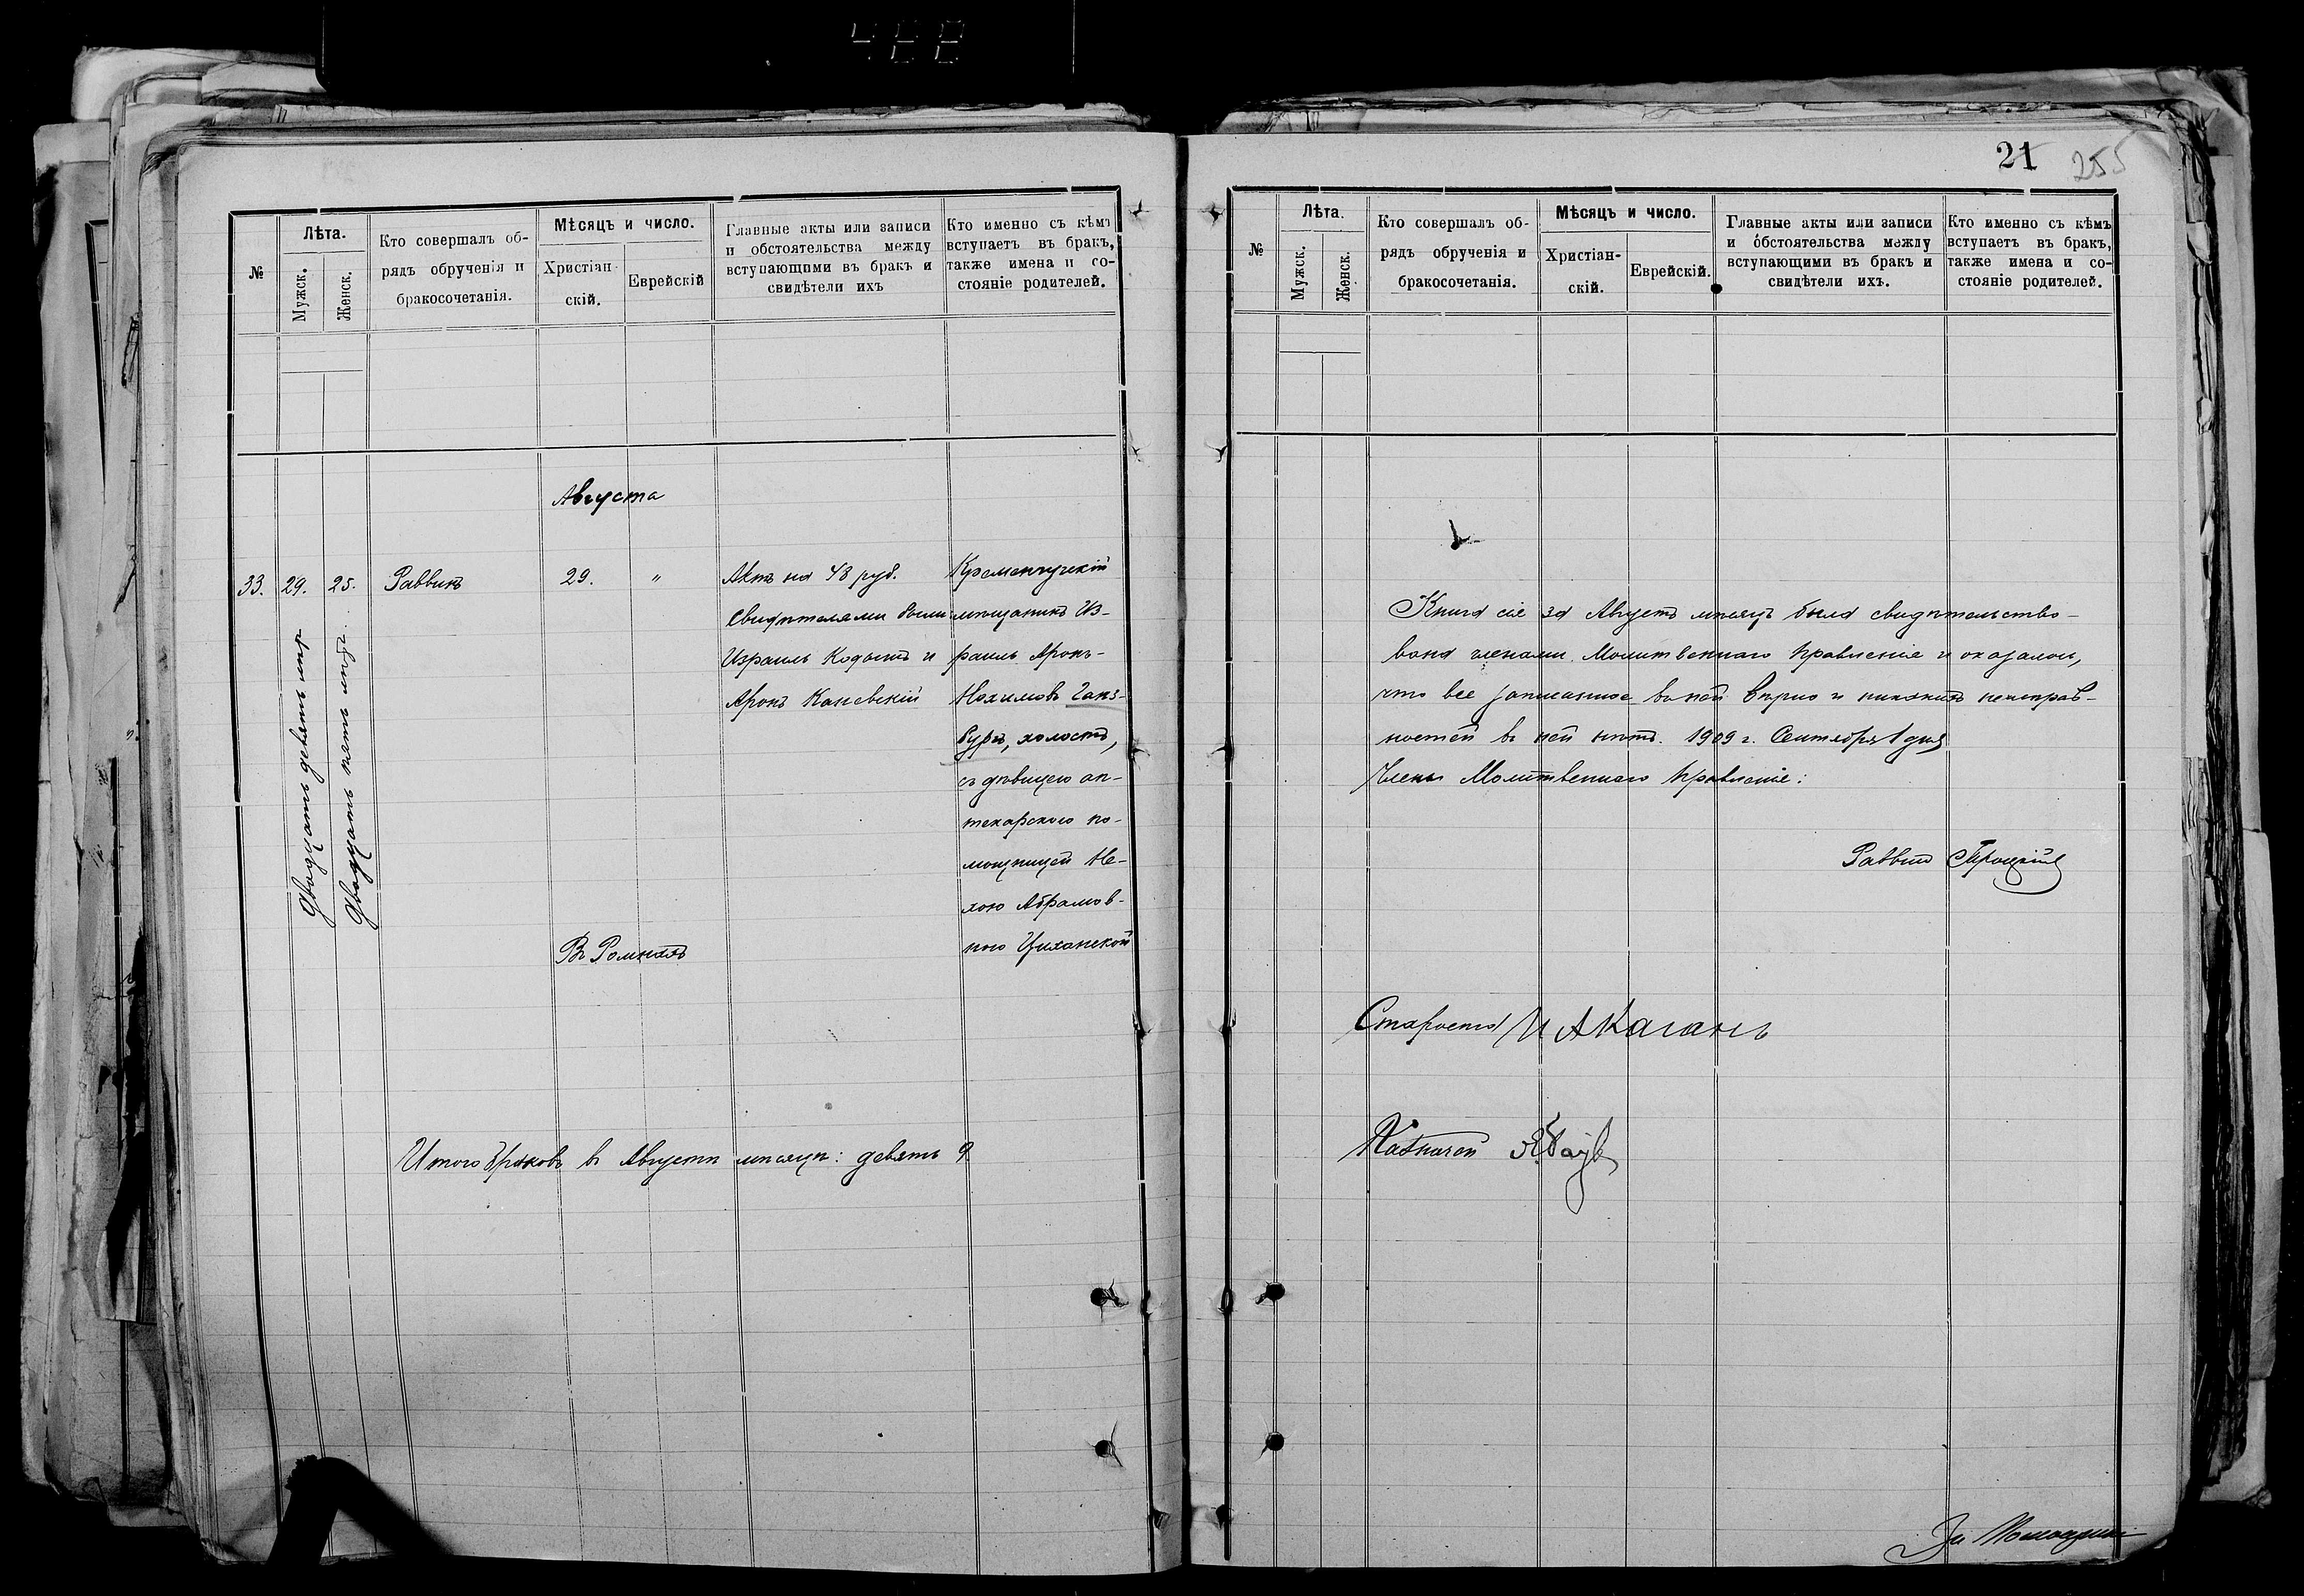 488
№
Лѣта.
Мужск.
Женск.
Кто совершалъ об-
рядъ обрученія и
бракосочетанія.
Мѣсяцъ и число.
Христіан
скій.
Еврейскій
Главные акты или записи
и обстоятельства между
вступающими въ бракъ и
свидѣтели ихъ
Кто именно съ кѣмъ
вступаетъ въ бракъ,
также имена и со-
стояніе родителей.
Августа
33.
29.
Двадцать девять лѣтъ
25.
Двадцать пять лѣтъ
Раввинъ
29.
"
Актъ на 48 руб.
Свидѣтелями были
Израиль Кодышъ и
Аронъ Каневскій
Кременчугскій
мѣщанинъ Из-
раиль Аронъ-
Нохимовъ Ганз-
бургъ, холостъ,
съ дѣвицею ап-
текарского по-
мощницей Не-
хою Абрамов-
ною Цихонской
Въ Ромнахъ
Итого браковъ въ Августѣ мѣсяцѣ: девять 9
21
255
№
Лѣта.
Мужск.
Женск.
Кто совершалъ об-
рядъ обрученія и
бракосочетанія.
Мѣсяцъ и число.
Христіан-
скій.
Еврейскій.
Главные акты или записи
и обстоятельства между
вступающими въ бракъ и
свидѣтели ихъ.
Кто именно съ кѣмъ
вступаетъ въ бракъ,
также имена и со-
стояніе родителей.
Книга сія за Августъ мѣсяцъ была свидѣтельство-
вана членами Молитвеннаго Правленія и оказалось,
что все записанное въ ней вѣрно и никакихъ неисправ-
ностей въ ней нѣтъ. 1909 г. Сентября 1 дня
Члены Молитвеннаго Правленія:
Раввинъ
Староста И А Каганъ
Казначей
За